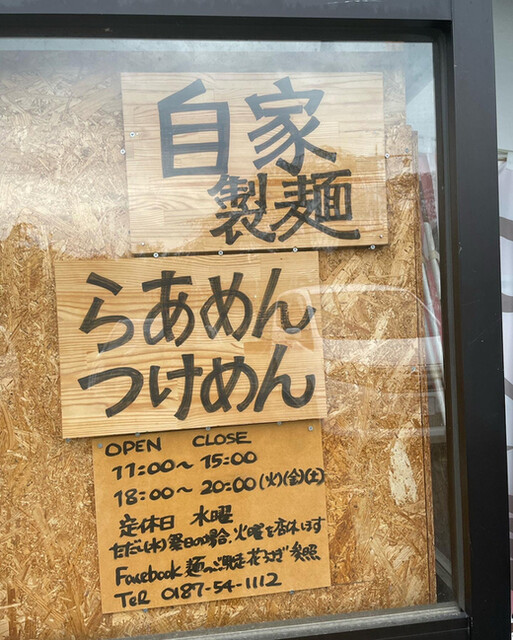 自家
製麺
らあめん
つけめん
OPEN CLOSE
11:00～15:00
18:00～20:00(火)(金)(土)
定休日 水曜
ただし(水)祭日の場合、火曜を店休します
Facebook 麺の 参照
Tel 0187-54-1112